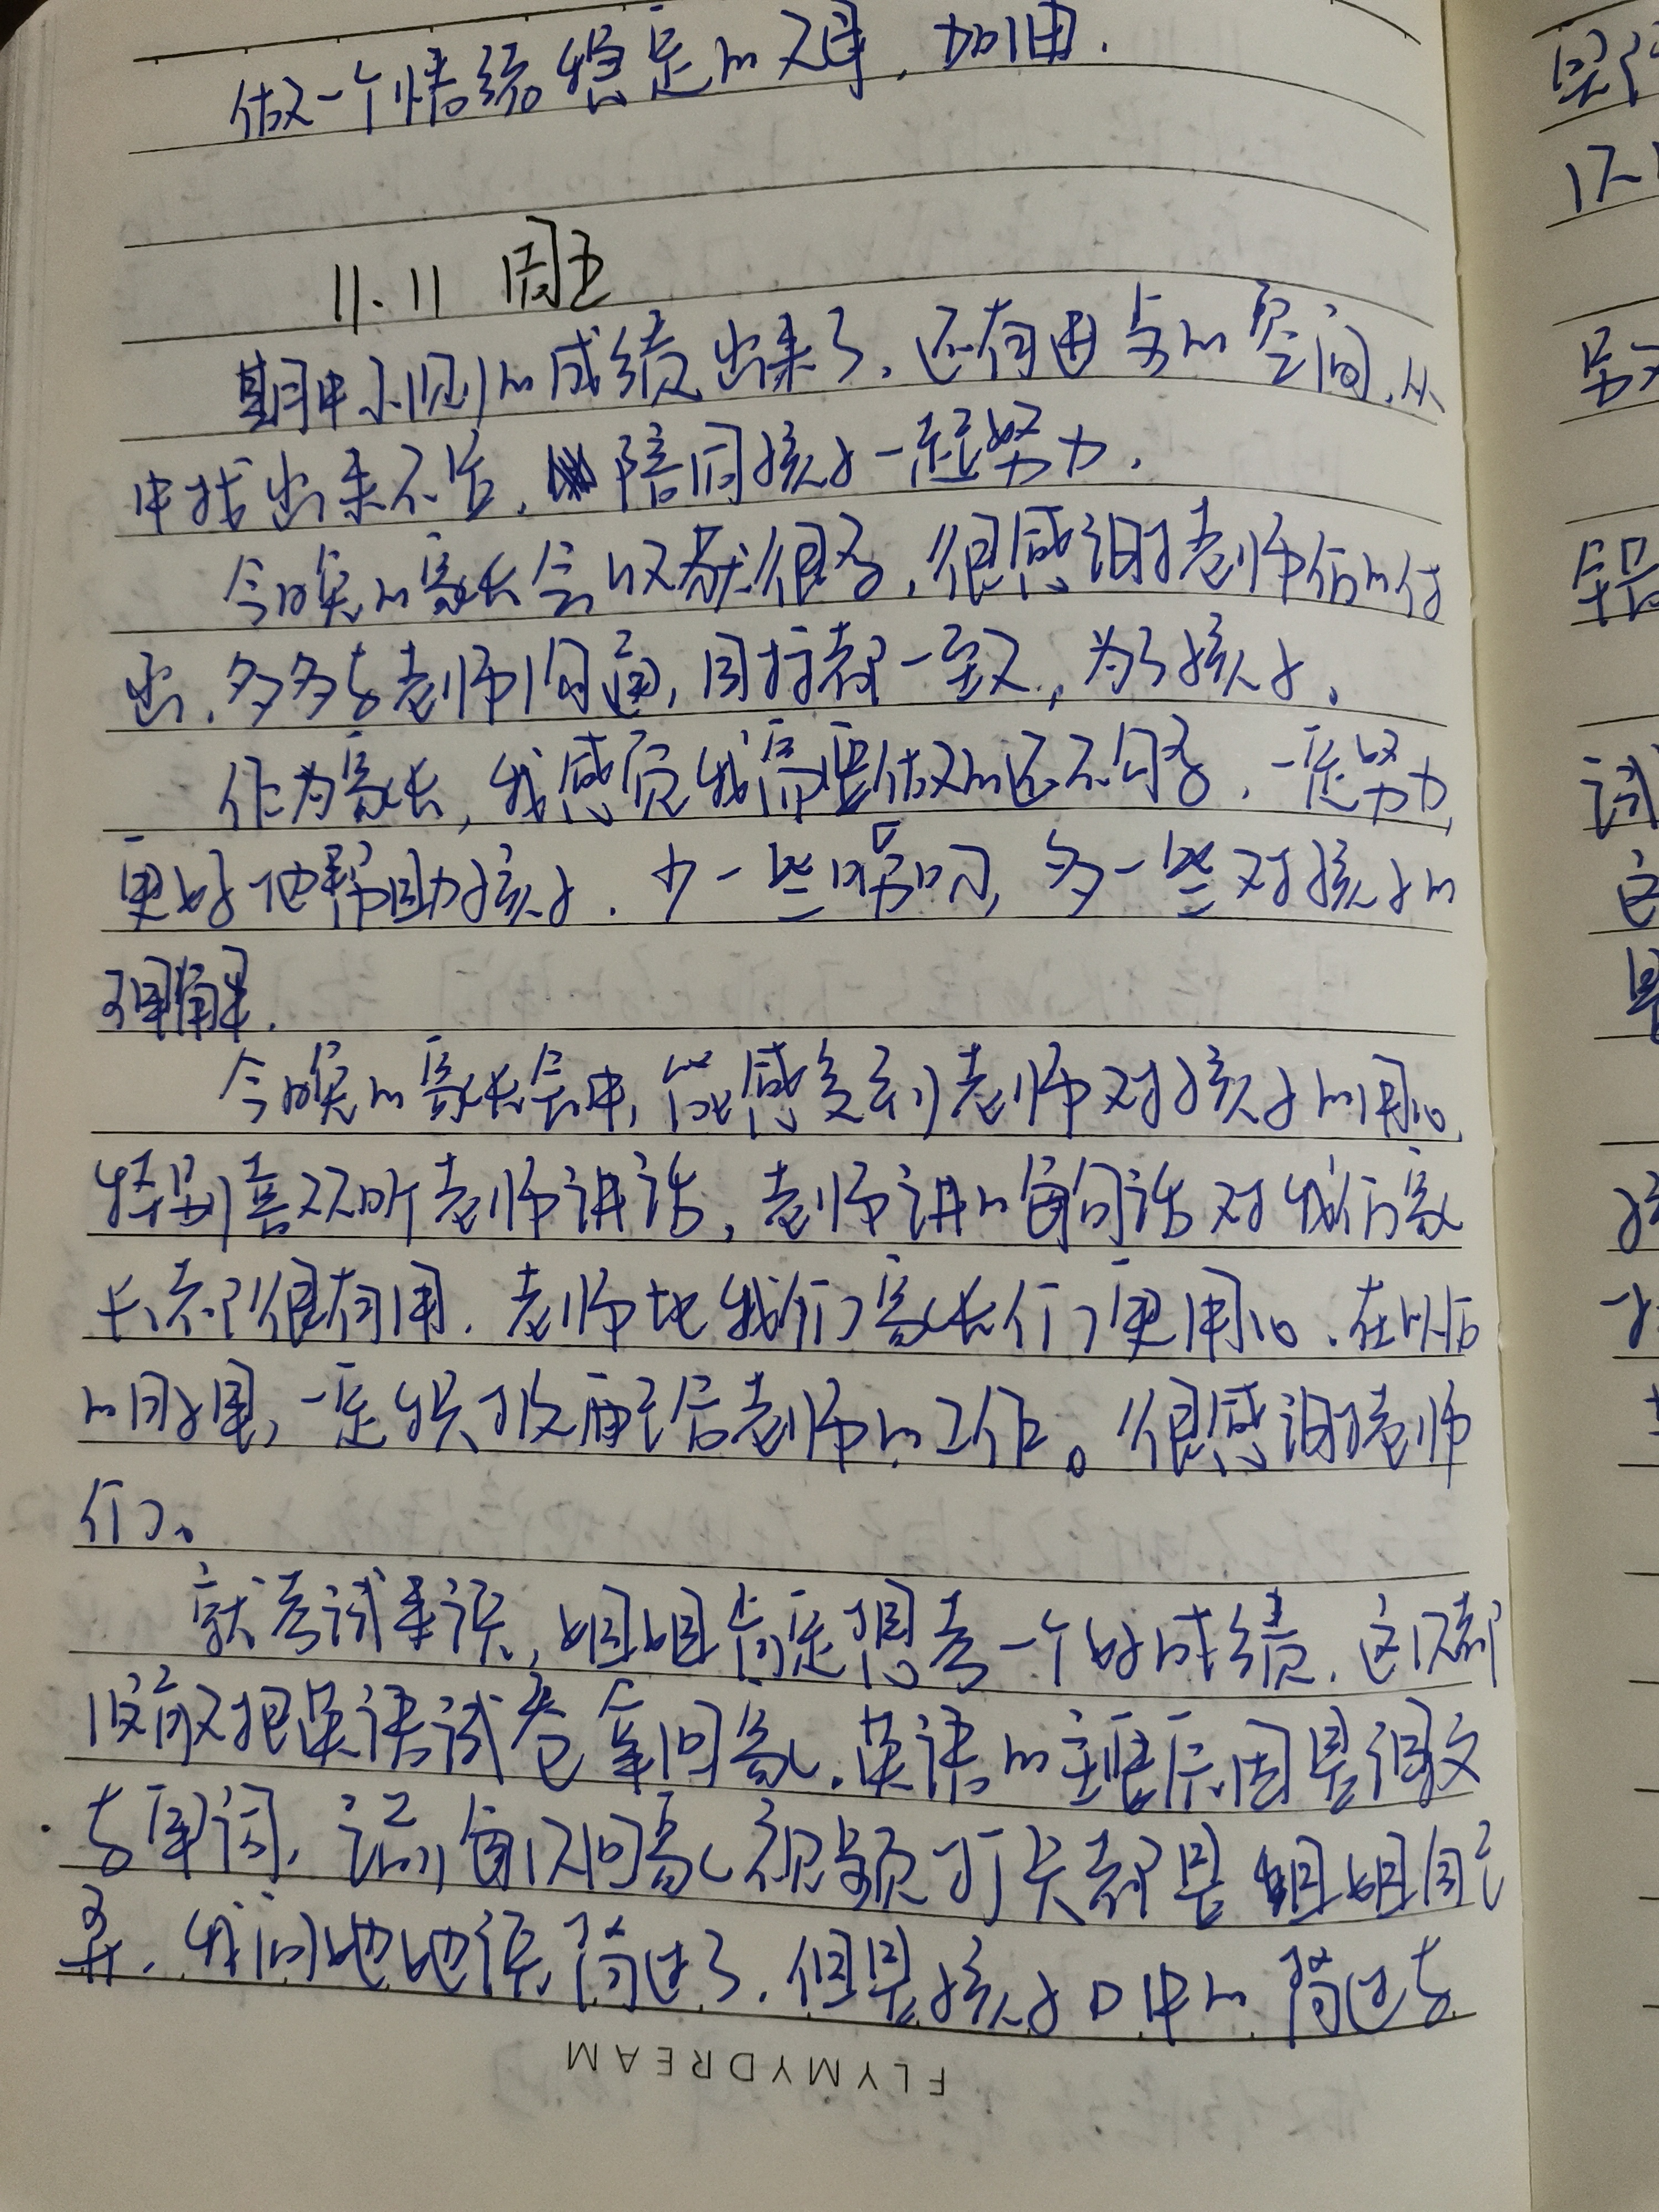 做一个情绪稳定的父母，加油．
11.11 周五
期中小测的成绩出来了，还有进步的空间，从
中找出来不足，陪同孩子一起努力．
今晚的家长会收获很多，很感谢老师们的付
出，多多与老师沟通，目标都一致，为了孩子。
作为家长，我感觉我需要做的还不够多，一定努力，
更好地帮助孩子．少一些唠叨，多一些对孩子的
理解．
今晚的家长会中，能感受到老师对孩子的用心，
特别喜欢听老师讲话，老师讲的每句话对我们家
长都很有用．老师比我们家长们更用心．在以后
的日子里，一定积极配合老师的工作。很感谢老师
们。
就考试来说，姐姐肯定想考一个好成绩，这次都
没敢把英语试卷拿回家．英语的主要原因是课文
与单词，记的每次回家视频打卡都是姐姐自己
弄，我问她她说背过了．但是孩子口中的背过与
FLYMYDREAM